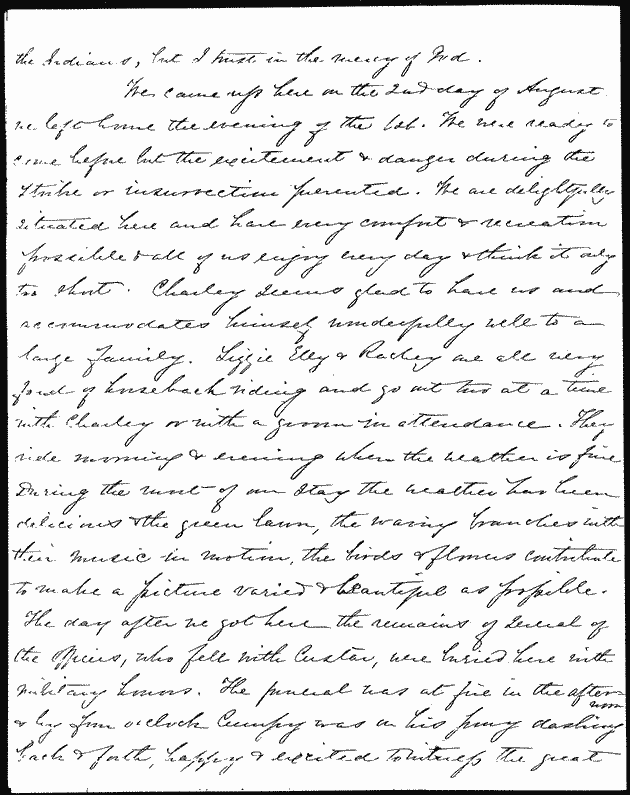 the Indians, but I trust in the mercy of God.
We came up here on the 2nd day of August
we left home the evening of the 1st. We were ready to
come before but the excitement & danger during the
strike or insurrection prevented. We are delightfully
situated here and have every comfort & recreation
possible & all of us enjoy every day & think it only
too short. Charley seems glad to have us and
accommodates himself wonderfully well to a
large family. Lizzie Elly & Rachey are all very
fond of horseback riding and go out two at a time
with Charley or with a groom in attendance. They
ride morning & evening when the weather is fine
During the most of our stay the weather has been
delicious & the green lawn, the waving branches with
their music in motion, the birds & flowers contribute
to make a picture varied & beautiful as possible.
The day after we got here the remains of several of
the officers, who fell with Custar, were buried here with
military honors. The funeral was at five in the afternoon
& by four o'clock was on his pony dashing
back & forth, happy & excited to witness the great